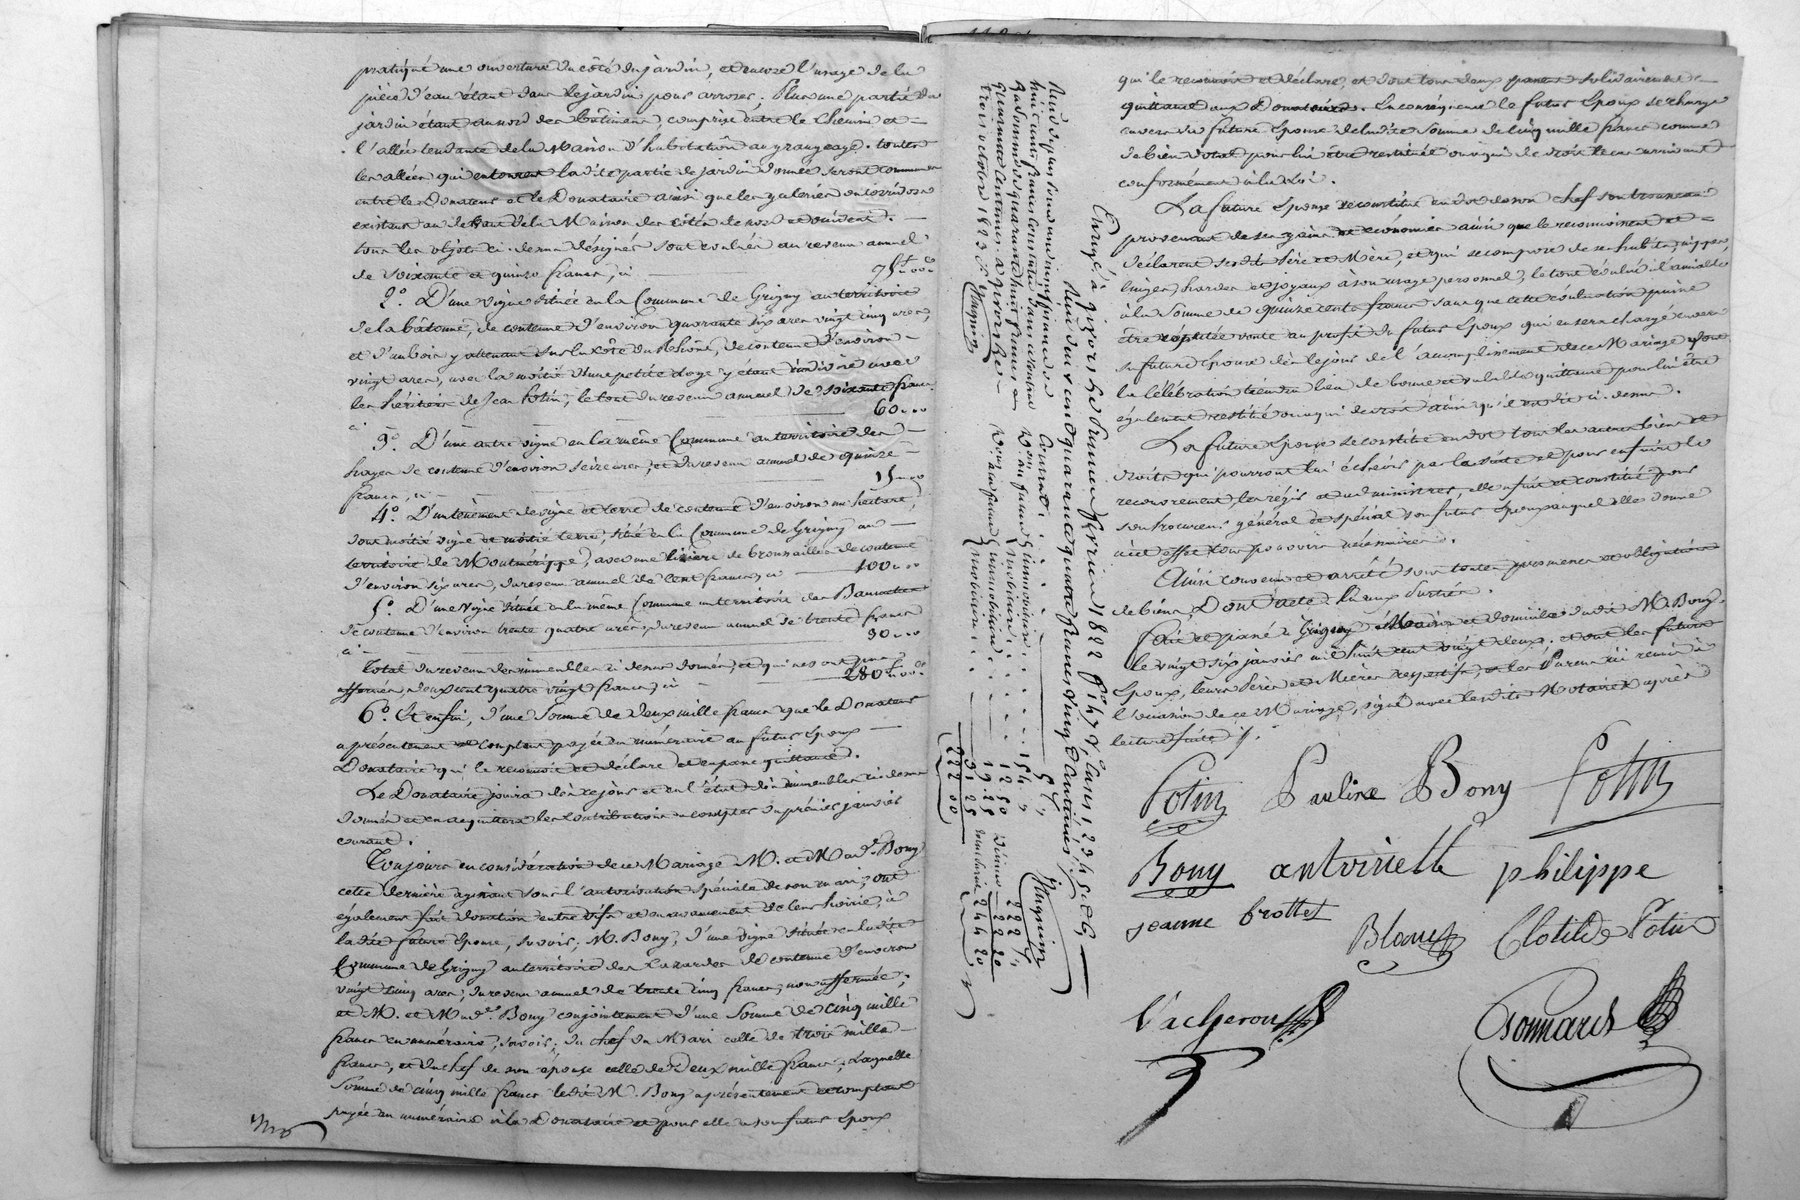 pratiqué une ouverture du côté du jardin, et encore l'usage de la
pièce d'eau étant dans le jardin pour arroser; Plus une partie du
jardin étant au nord des bâtiments comprise entre le chemin et
l'allée tendante de la Maison d'habitation au grangeage. toutes
les allées qui entourent la dite partie de jardin donnée seront communes
entre les Donateurs et le Donataire ainsi que les galeries ou corridors
existant au de la Maison des côtés de nord et orient.
tous les objets ci-dessus désignés sont évalués au revenu annuel
de soixante et quinze francs, ci 75 f 00 c
2.º D'une vigne située en la Commune de Grigny au territoire
de la bâtonne, de contenue d'environ quarante six ares vingt cinq ares,
et d'un bois y attenant sur la côte du Rhône, de contenue d'environ
vingt ares, avec la moitié d'une petite loge y étant indivise avec
les héritiers de Jean Potin; le tout du revenu annuel de soixante francs
ci 60 00
3.º D'une autre vigne en la même Commune au territoire des
hayes de contenue d'environ seize ares, et du revenu annuel de quinze
francs, ci 15 00
4.º D'un tènement de vigne et terre de contenue d'environ un hectare,
dont moitié vigne et moitié terre, situé en la Commune de Grigny au
territoire de, avec une lizière de broussailles de contenue
d'environ six ares, du revenu annuel de Cent francs, ci 100 00
5.º D'une Vigne située en la même Commune au territoire des
de contenue d'environ trente quatre ares, du revenu annuel de trente francs
ci 30 00
Total du revenu des immeubles ci dessus donnés, et qui ne sont pas
affermés, deux cent quatre vingt francs, ci 280 f 00 c
6.º Et enfin, d'une Somme de deux mille francs que le Donateur
a présentement et comptant payée en numéraire au futur Epoux
Donataire qui le reconnoit et déclare et en passe quittance.
Le Donataire jouira dès ce jour et en l'état des immeubles ci dessus
donnés et en acquittera les contributions à compter du premier janvier
courant.
Toujours en considération de ce Mariage M. et Mad.e Bony
cette dernière agissant sous l'autorisation spéciale de son mari, ont
également fait donation entre vifs et en avancement de leur hoirie, à
la dite future Epouse, savoir, M. Bony, d'une vigne située en la dite
Commune de Grigny au territoire des de contenue d'environ
vingt cinq ares, du revenu annuel de trente cinq francs, non affermée;
et M. et Mad.e Bony conjointement d'une Somme de cinq mille
francs en numéraire, savoir; du chef du Mari celle de trois mille
francs, et du chef de son épouse celle de Deux mille francs; Laquelle
Somme de cinq mille francs le dit M. Bony a présentement et comptant
payée en numéraire à la Donataire et pour elle à son futur Epoux
qui le reconnoit et déclare, et dont tous deux passent solidairement
quittance aux Donateurs. En conséquence le futur Epoux se charge
envers la future Epouse de la dite Somme de Cinq mille francs comme
de bien dotal pour lui être restituée ou à qui de droit le cas arrivant
conformément à la Loi.
La future Epouse se constitue en dot de son chef son trousseau
provenant de ses gains et économies ainsi que le reconnoissent et
déclarent ses dits Père et Mère, et qui se compose de ses habits, nippes,
linges, hardes et joyaux à son usage personnel, le tout évalué à l'amiable
à la somme de quinze cents francs sans que cette évaluation puisse
être réputée vente au profit du futur Epoux qui en sera chargé envers
sa future Epouse dès le jour de l'accomplissement de ce Mariage dont
la célébration tiendra lieu de bonne et valable quittance pour lui être
également restitué ou à qui de droit ainsi qu'il est dit ci-dessus.
La future Epouse se constitue en dot tous les autres biens et
droits qui pourront lui échéoir par la suite et pour en faire le
recouvrement, les régir et administrer, elle a fait et constitué pour
son Procureur général et spécial son futur Epoux auquel elle donne
à cet effet tous pouvoirs nécessaires.
Ainsi convenu et arrêté sous toutes promesses et obligations
de biens, Dont acte lu aux Parties.
Fait et passé à Grigny, Maison et domicile du dit M. Bony,
le vingt six janvier mil huit cent vingt deux, et ont les futurs
Epoux, leurs Pères et Mères respectifs, et les Parens ici réunis à
l'occasion de ce Mariage, signé avec les dits Notaires après
lecture faite.
Potin Pauline Bony Potin
Bony antoinette philippe
jeanne brottet
Blanc Clotilde Potin
Vacheron Sonnard
Enreg.é à Givors le premier février 1822
Reçu deux cent quarante quatre francs vingt centimes
trois octobre 1823